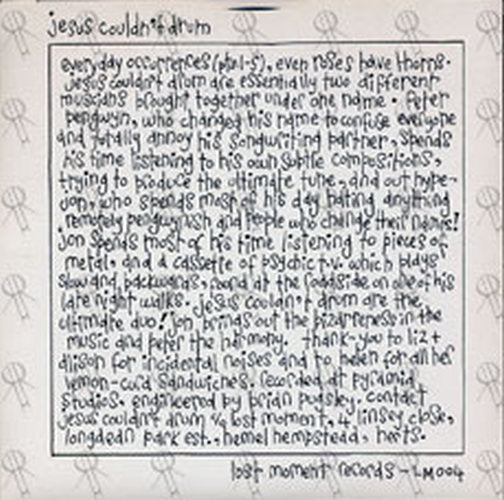 jesus couldn't drum
everyday occurrences (pts 1-5), even roses have thorns.
jesus couldn't drum are essentially two different
musicians brought together under one name. peter
pengwyn, who changed his name to confuse everyone
and totally annoy his songwriting partner, spends
his time listening to his own subtle compositions,
trying to produce the ultimate tune, and out hype-
jon, who spends most of his day hating anything
remotely pengwynish and people who change their names!
jon spends most of his time listening to pieces of
metal, and a cassette of psychic t.v. which plays
slow and backwards, found at the roadside on one of his
late night walks. jesus couldn't drum are the
ultimate duo! jon brings out the bizarreness in the
music and peter the harmony. thank-you to liz +
alison for incidental noises and to helen for all her
lemon-curd sandwiches. recorded at pyramid
studios. engineered by brian pugsley. contact
jesus couldn't drum c/o lost moment, 4 linsey close,
longdean park est., hemel hempstead, herts.
lost moment records - LM004